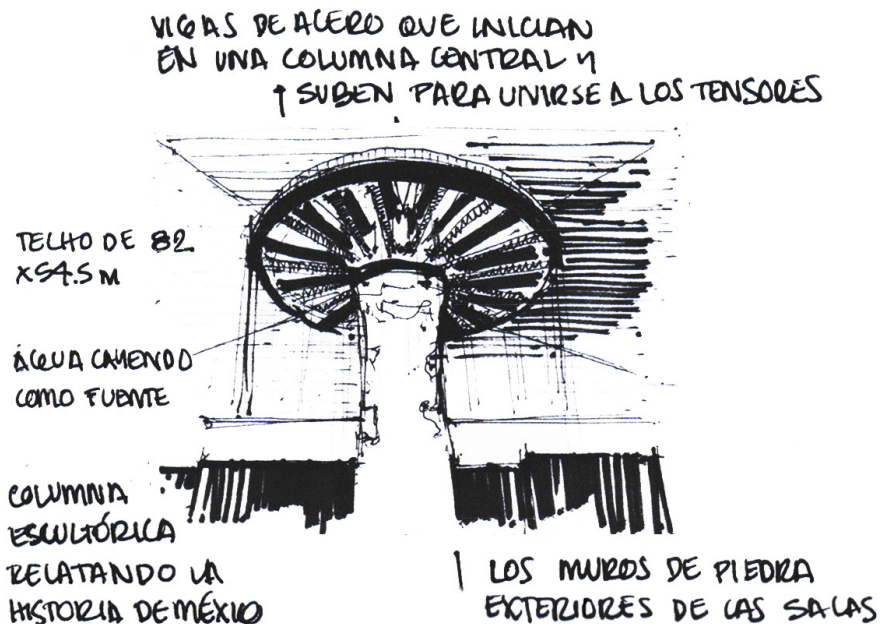 VIGAS DE ACERO QUE INICIAN
EN UNA COLUMNA CENTRAL Y
SUBEN PARA UNIRSE A LOS TENSORES
TECHO DE 82
X54.5 M
ÁGUA CAYENDO
COMO FUENTE
COLUMNA
ESCULTÓRICA
RELATANDO LA
HISTORIA DE MÉXICO
LOS MUROS DE PIEDRA
EXTERIORES DE LAS SALAS